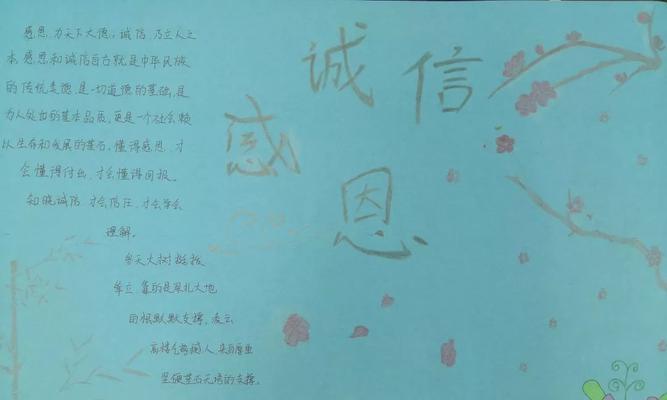 感恩,为天下大德,诚信,乃立人之
本,感恩和诚信自古就是中华民族
的传统美德,是一切道德的基础,是
为人处世的基本品质,更是一个社会赖
以生存和发展的基石,懂得感恩,才
会懂得付出,才会懂得回报。
知晓诚信,才会信任,才会学会
理解。
参天大树挺拔
耸立,靠的是深扎大地
的根默默支撑,凌云
高楼气势摄人,来自厚重
坚硬基石无语的支撑。
诚信
感恩